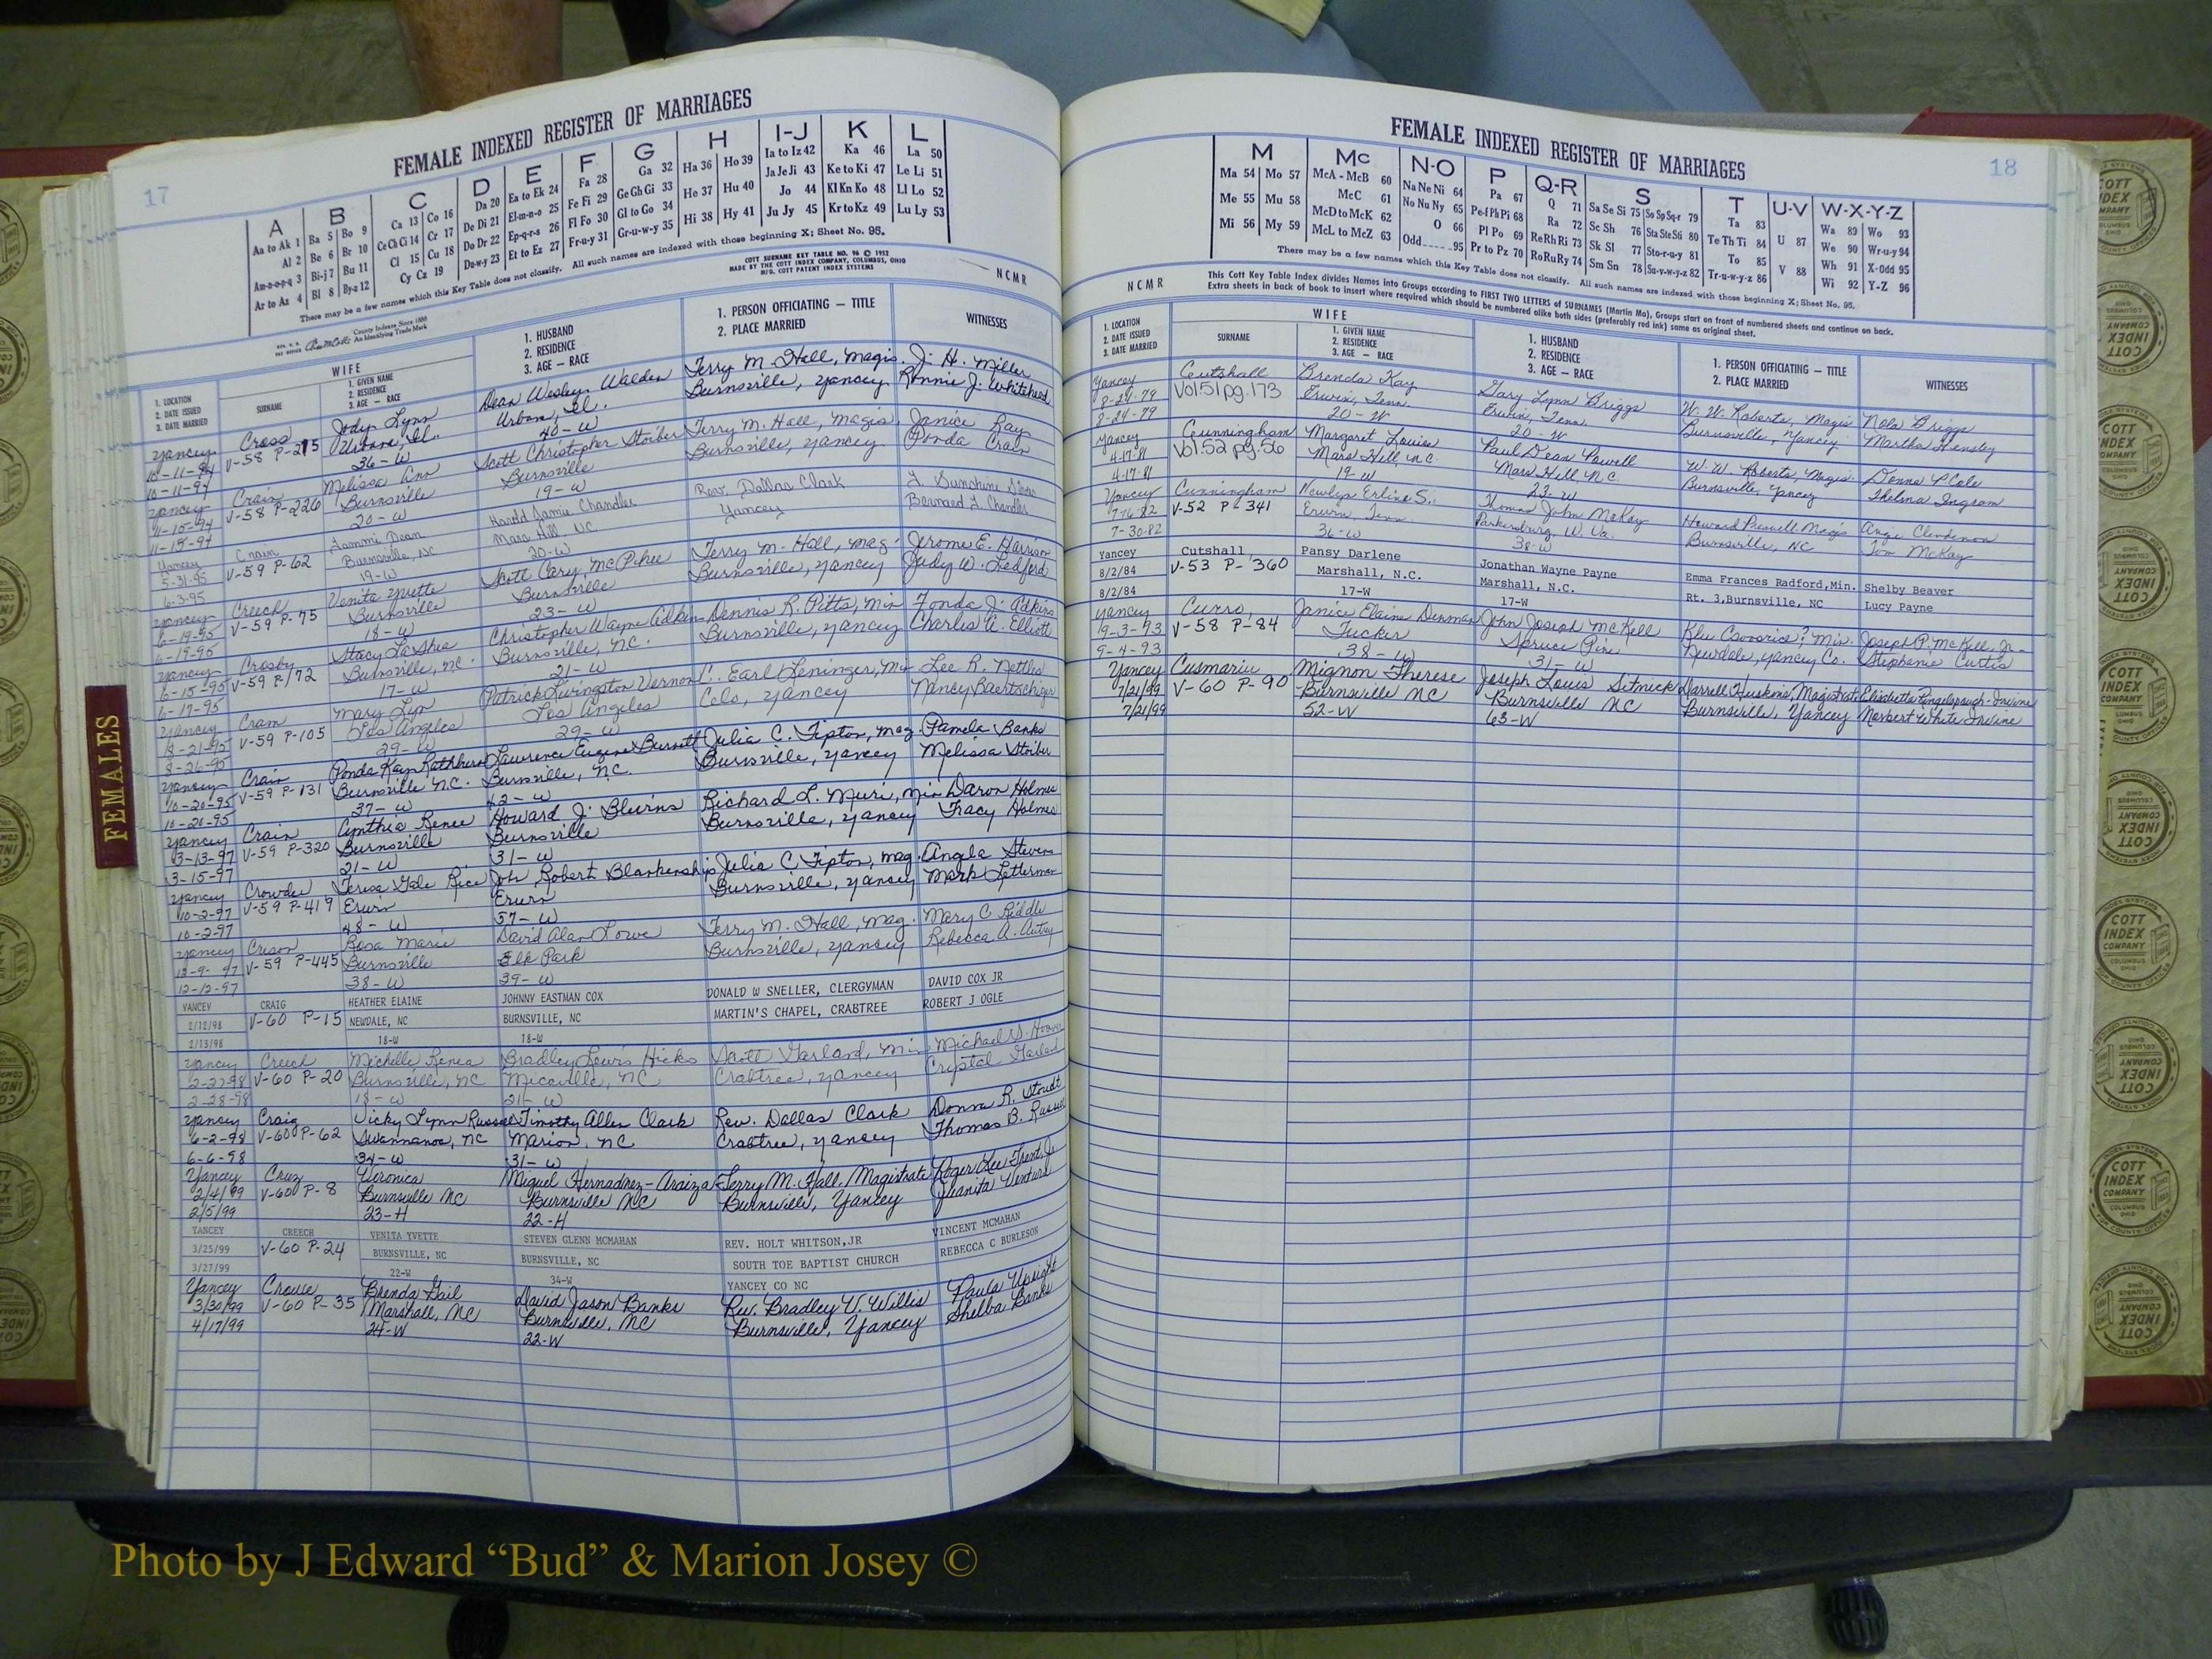 17
FEMALE INDEXED REGISTER OF MARRIAGES
A
Aa to Ak 1
Al 2
Am-n-o-p-q 3
Ar to Az 4
B
Ba 5 Bo 9
Be 6 Br 10
Bi-j 7 Bu 11
Bl 8 By-z 12
C
Ca 13 Co 16
Ce Ch Ci 14 Cr 17
Cl 15 Cu 18
Cy Cz 19
D
Da 20
De Di 21
Do Dr 22
Du-w-y 23
E
Ea to Ek 24
El-m-n-o 25
Ep-q-r-s 26
Et to Ez 27
F
Fa 28
Fe Fi 29
Fl Fo 30
Fr-u-y 31
G
Ga 32
Ge Gh Gi 33
Gl to Go 34
Gr-u-w-y 35
H
Ha 36 Ho 39
He 37 Hu 40
Hi 38 Hy 41
I-J
Ia to Iz 42
Ja Je Ji 43
Jo 44
Ju Jy 45
K
Ka 46
Ke to Ki 47
Kl Kn Ko 48
Kr to Kz 49
L
La 50
Le Li 51
Ll Lo 52
Lu Ly 53
There may be a few names which this Key Table does not classify. All such names are indexed with those beginning X; Sheet No. 95.
County Indexes Since 1888
An Identifying Trade Mark
COTT SURNAME KEY TABLE NO. 96 © 1952
MADE BY THE COTT INDEX COMPANY, COLUMBUS, OHIO
MFG. COTT PATENT INDEX SYSTEMS
NCMR
1. LOCATION
2. DATE ISSUED
3. DATE MARRIED
WIFE
SURNAME
1. GIVEN NAME
2. RESIDENCE
3. AGE — RACE
1. HUSBAND
2. RESIDENCE
3. AGE — RACE
1. PERSON OFFICIATING — TITLE
2. PLACE MARRIED
WITNESSES
Yancey Cross Jody Lynn Dean Wesley Walden Terry M. Hall, Magis. J. H. Miller
10-11-94 V-58 P-215 Urbana, Il. Urbana, Il. Burnsville, Yancey Ronnie J. Whitehead
10-11-94 36-W 40-W
Yancey Crain Melissa Ann Scott Christopher Stoiber Terry M. Hall, Magis. Janice Ray
11-15-94 V-58 P-226 Burnsville Burnsville Burnsville, Yancey Ronda Crain
11-15-94 20-W 19-W
Yancey Crain Tammi Dean Harold Jamie Chandler Rev. Dallas Clark
5-31-95 V-59 P-62 Burnsville, NC Mars Hill NC Yancey Bernard L. Chandler
6-3-95 19-W 20-W
Yancey Creech Venita Yvette Scott Cary McPhee Terry M. Hall, Mag. Jerome E. Harrison
6-19-95 V-59 P-75 Burnsville Burnsville Burnsville, Yancey Judy W. Ledford
6-19-95 18-W 23-W
Yancey Crosby Stacy LaShea Christopher Wayne Adkins Dennis R. Pitts, Min Fonda J. Adkins
6-15-95 V-59 P-72 Burnsville, NC. Burnsville, NC. Burnsville, Yancey Charles A. Elliott
6-17-95 17-W 21-W
Yancey Cram Mary Lyn Patrick Livingston Vernon C. Earl Leninger, Min Lee R. Nettles
8-21-95 V-59 P-105 Los Angeles Los Angeles Celo, Yancey Nancy Baertschiger
8-26-95 29-W 29-W
Yancey Crain Ronda Kay Rathburn Lawrence Eugene Burnett Julia C. Tipton, Mag Pamela Banks
10-20-95 V-59 P-131 Burnsville NC. Burnsville, NC. Burnsville, Yancey Melissa Stoiber
10-20-95 37-W 42-W
Yancey Crain Cynthia Renee Howard J. Blevins Richard L. Muri, Min Daron Holmes
3-13-97 V-59 P-320 Burnsville Burnsville Burnsville, Yancey Tracy Holmes
3-15-97 21-W 31-W
Yancey Crowder Teresa Gale Rice John Robert Blankenship Julia C. Tipton, Mag. Angela Stevens
10-2-97 V-59 P-419 Erwin Erwin Burnsville, Yancey Mark Letterman
10-2-97 48-W 57-W
Yancey Crison Rosa Marie David Alan Lowe Terry M. Hall, Mag. Mary C Riddle
12-9-97 V-59 P-445 Burnsville Elk Park Burnsville, Yancey Rebecca A. Autry
12-12-97 38-W 39-W
YANCEY CRAIG HEATHER ELAINE JOHNNY EASTMAN COX DONALD W SNELLER, CLERGYMAN DAVID COX JR
2/12/98 V-60 P-15 NEWDALE, NC BURNSVILLE, NC MARTIN'S CHAPEL, CRABTREE ROBERT J OGLE
2/13/98 18-W 18-W
Yancey Creech Michelle Renea Bradley Lewis Hicks Scott Garland, Min Michael D. Hoover
2-27-98 V-60 P-20 Burnsville, NC Micaville, NC Crabtree, Yancey Crystal Garland
2-28-98 18-W 21-W
Yancey Craig Vicky Lynn Russell Timothy Allen Clark Rev. Dallas Clark Donna R. Stoudt
6-2-98 V-60 P-62 Swannanoa, NC Marion, NC Crabtree, Yancey Thomas B. Russell
6-6-98 34-W 31-W
Yancey Cruz Veronica Miguel Hernadnez-Araiza Terry M. Hall, Magistrate Roger Lee Trent, Jr
2/4/99 V-60 P-8 Burnsville NC Burnsville NC Burnsville, Yancey Juanita Ventura
2/5/99 23-H 22-H
YANCEY CREECH VENITA YVETTE STEVEN GLENN MCMAHAN REV. HOLT WHITSON,JR VINCENT MCMAHAN
3/25/99 V-60 P-24 BURNSVILLE, NC BURNSVILLE, NC SOUTH TOE BAPTIST CHURCH REBECCA C BURLESON
3/27/99 22-W 34-W YANCEY CO NC
Yancey Crowe Brenda Gail David Jason Banks Rev. Bradley V. Willis Paula Upright
3/30/99 V-60 P-35 Marshall, NC Burnsville, NC Burnsville, Yancey Shelba Banks
4/17/99 24-W 22-W
FEMALES
FEMALE INDEXED REGISTER OF MARRIAGES
18
M
Ma 54 Mo 57
Me 55 Mu 58
Mi 56 My 59
Mc
McA - McB 60
McC 61
McD to McK 62
McL to McZ 63
N-O
Na Ne Ni 64
No Nu Ny 65
O 66
Odd 95
P
Pa 67
Pe-f Ph Pi 68
Pl Po 69
Pr to Pz 70
Q-R
Q 71
Ra 72
Re Rh Ri 73
Ro Ru Ry 74
S
Sa Se Si 75 So Sp Sq-r 79
Sc Sh 76 Sta Ste Sti 80
Sk Sl 77 Sto-r-u-y 81
Sm Sn 78 Su-v-w-y-z 82
T
Ta 83
Te Th Ti 84
To 85
Tr-u-w-y-z 86
U-V
U 87
V 88
W-X-Y-Z
Wa 89 Wo 93
We 90 Wr-u-y 94
Wh 91 X-Odd 95
Wi 92 Y-Z 96
There may be a few names which this Key Table does not classify. All such names are indexed with those beginning X; Sheet No. 95.
NCMR
This Cott Key Table Index divides Names into Groups according to FIRST TWO LETTERS of SURNAMES (Martin Ma), Groups start on front of numbered sheets and continue on back.
Extra sheets in back of book to insert where required which should be numbered alike both sides (preferably red ink) same as original sheet.
1. LOCATION
2. DATE ISSUED
3. DATE MARRIED
WIFE
SURNAME
1. GIVEN NAME
2. RESIDENCE
3. AGE — RACE
1. HUSBAND
2. RESIDENCE
3. AGE — RACE
1. PERSON OFFICIATING — TITLE
2. PLACE MARRIED
WITNESSES
Yancey Cutshall Brenda Kay Gary Lynn Briggs W. W. Roberts, Magis Nola Briggs
8-24-79 Vol 51 pg. 173 Erwin, Tenn. Erwin, Tenn. Burnsville, Yancey Martha Hensley
8-24-79 20-W 20-W
Yancey Cunningham Margaret Louise Paul Dean Powell W. W. Roberts, Magis. Donna P. Cole
4-17-81 Vol 52 pg. 56 Mars Hill, N.C. Mars Hill, N.C. Burnsville, Yancey Thelma Ingram
4-17-81 19-W 23-W
Yancey Cunningham Newlyn Erline S. Thomas John McKay Howard Presnell Magis Angie Clendenon
V-52 P-341 Erwin, Tenn. Parkersburg, W. Va. Burnsville, NC Tom McKay
7-30-82 36-W 38-W
Yancey Cutshall, Pansy Darlene Jonathan Wayne Payne Emma Frances Radford,Min. Shelby Beaver
8/2/84 V-53 P-360 Marshall, N.C. Marshall, N.C. Rt. 3,Burnsville, NC Lucy Payne
8/2/84 17-W 17-W
Yancey Curro, Janice Elaine Denman John Joseph McKell Min. Joseph P. McKell, Jr.
9-3-93 V-58 P-84 Tucker Spruce Pine Newdale, Yancey Co. Stephanie Curtis
9-4-93 38-W 31-W
Yancey Cusmariu Mignon Therese Joseph Louis Sitnick Darrell Huskins, Magistrate
7/21/99 V-60 P-90 Burnsville NC Burnsville NC Burnsville, Yancey Norbert White Irvine
7/21/99 52-W 63-W
COTT INDEX COMPANY COLUMBUS OHIO
Photo by J Edward “Bud” & Marion Josey ©